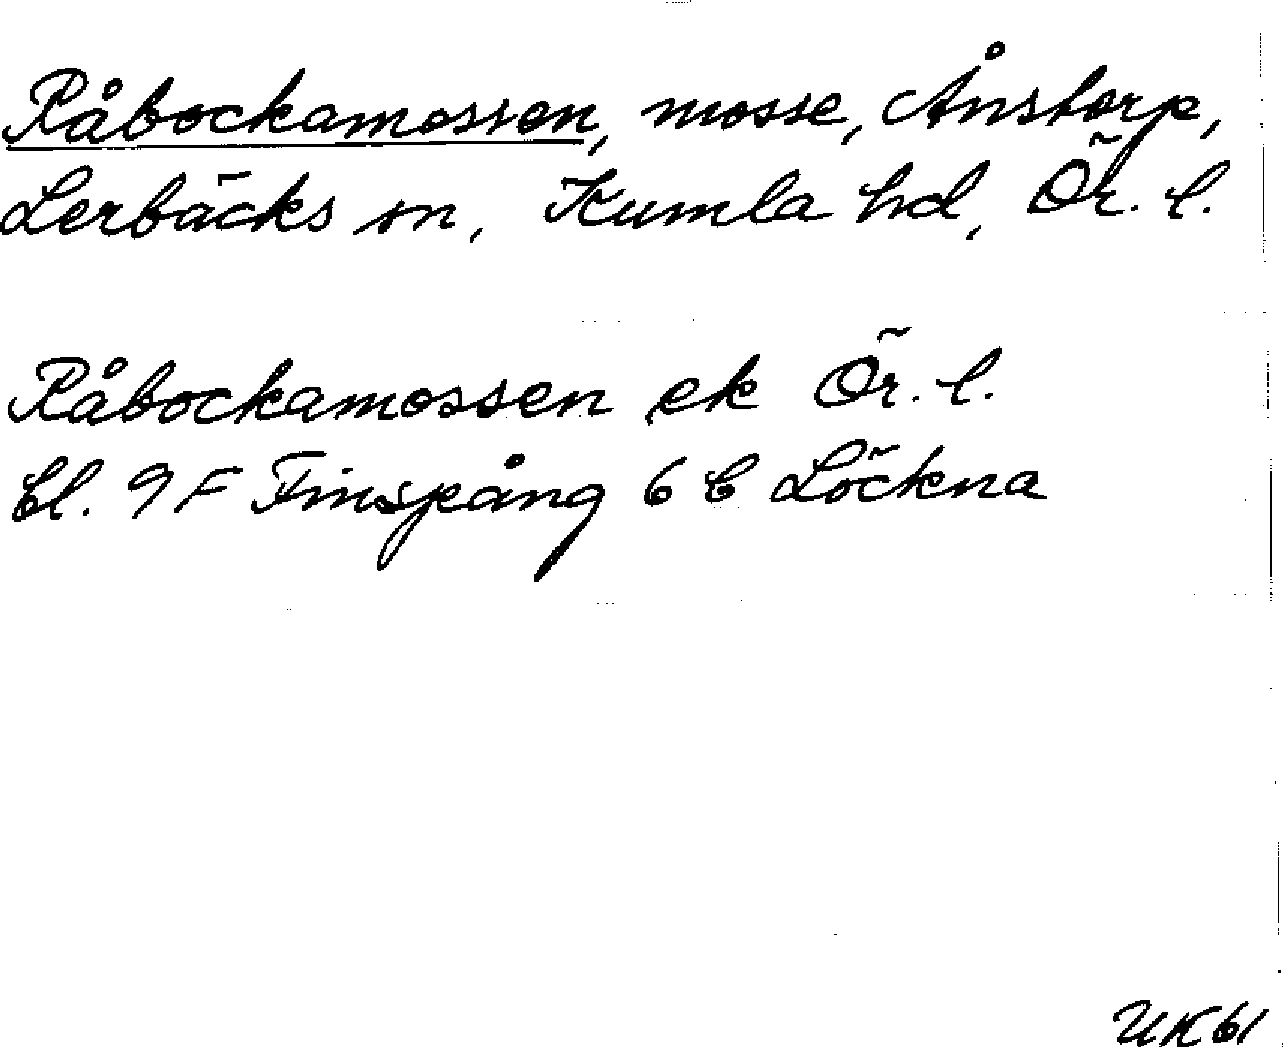 Råbockamossen, mosse, Ånstorp,
Lerbäcks sn, Kumla hd, Ör. l.
Råbockamossen ek Ör. l.
bl. 9 F Finspång 6 b Löckna
UK61